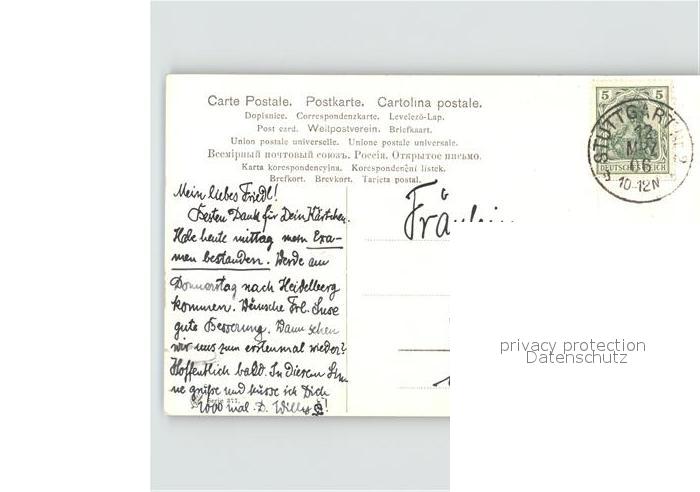 Carte Postale. Postkarte. Cartolina postale.
Dopisnice. Correspondenzkarte. Levelező-Lap.
Post card. Weltpostverein. Briefkaart.
Union postale universelle. Unione postale universale.
Всемірный почтовый союзъ. Россія. Открытое письмо.
Karta korrespondencyjna. Korespondenční lístek.
Brefkort. Brevkort. Tarjeta postal.
5 5
DEUTSCHES REICH
STUTTGART No 9
12
MRZ
06
10-12N
Mein liebes Friedl!
Besten Dank für Dein Kärtchen.
Habe heute mittag mein Exa-
men bestanden. Werde am
Donnerstag nach Heidelberg
kommen. Wünsche Frl. Suse
gute Besserung. Wann sehen
wir uns zum erstenmal wieder?
Hoffentlich bald. In diesem Sin-
ne grüße und küsse ich Dich
1000 mal. D. Willy
Serie
Fräulein
privacy protection
Datenschutz